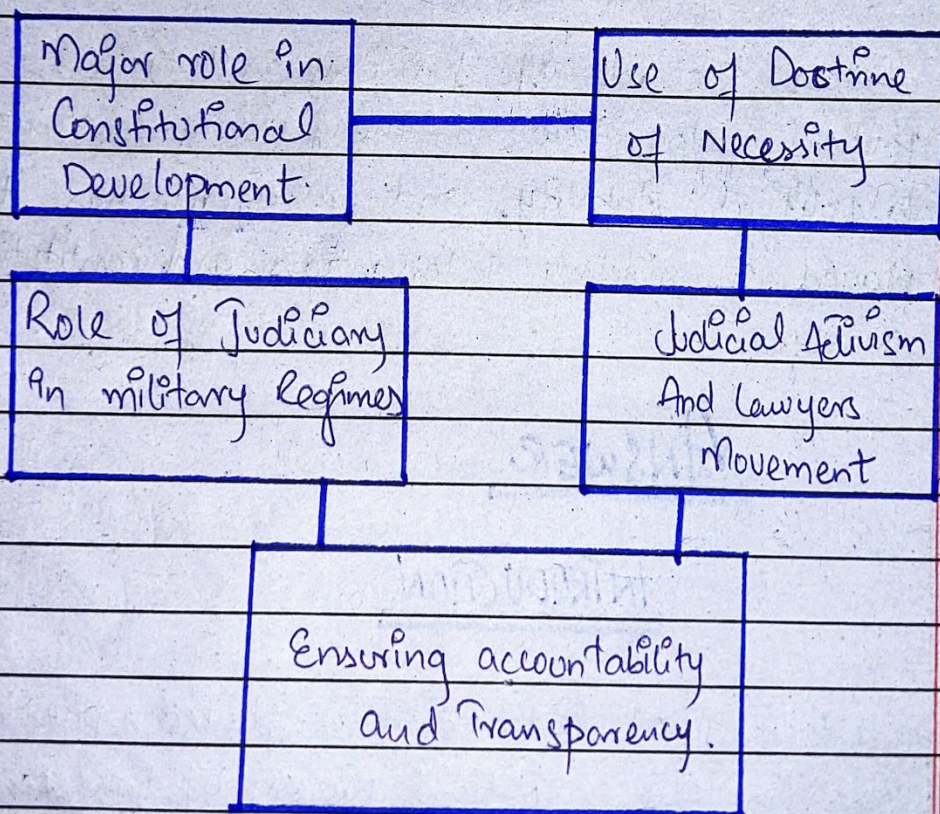 Major role in
Constitutional
Development.
Use of Doctrine
of Necessity
Role of Judiciary
in military Regimes
Judicial Activism
And Lawyers
Movement
Ensuring accountability
and Transparency.
ANSWER
INTRODUCTION